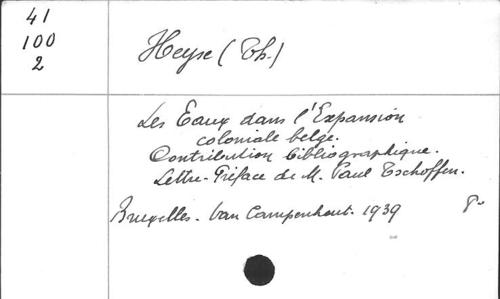 41
100
2
Heyse (Th.)
Les Eaux dans l'Expansion
coloniale belge.
Contribution bibliographique.
Lettre-Préface de M. Paul Tschoffen.
Bruxelles. Van Campenhout. 1939 8°